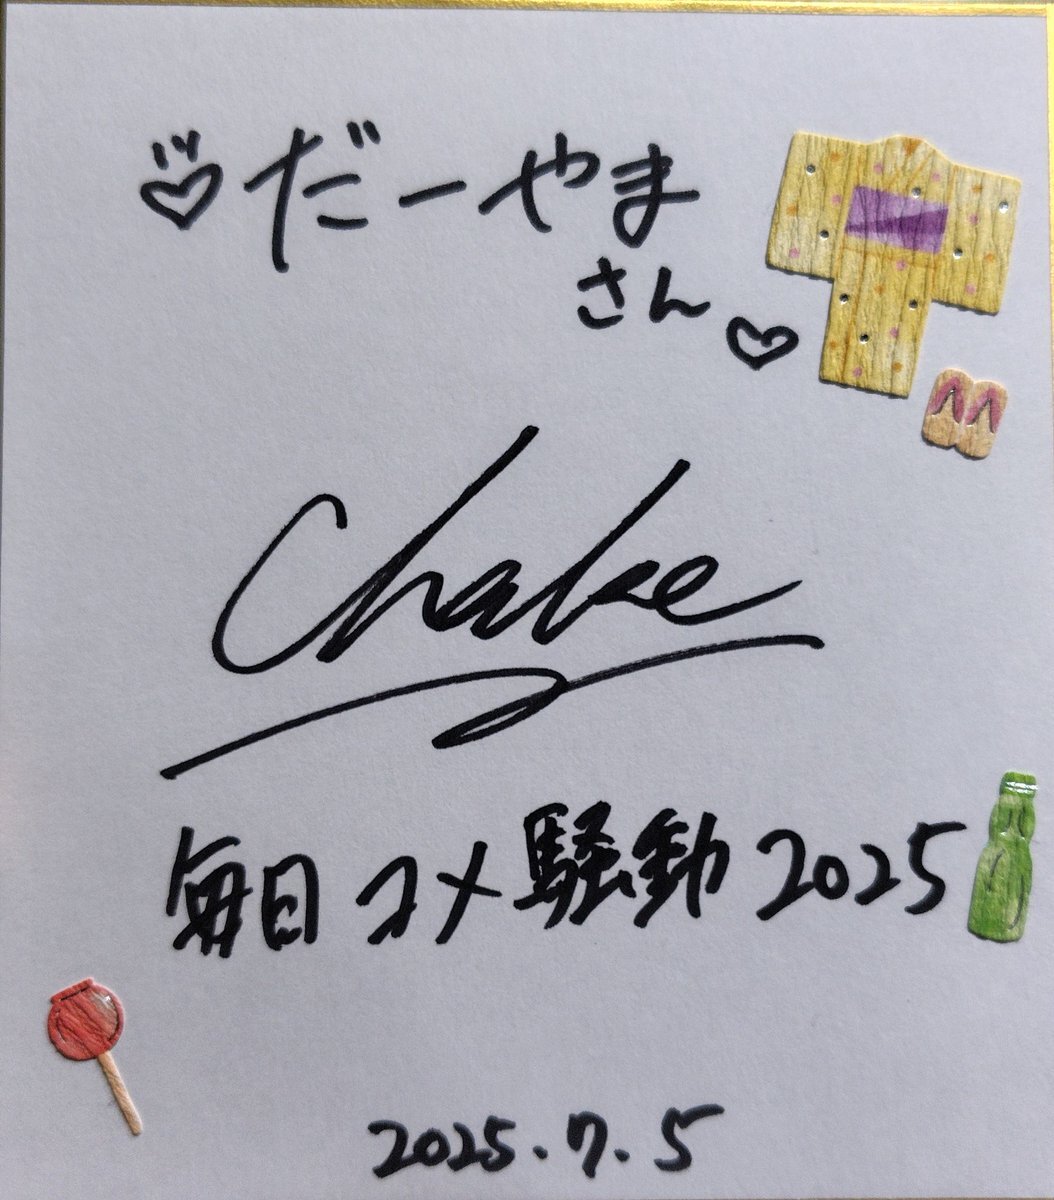 ♡だーやま
さん♡
Chake
毎日コメ騒動2025
2025.7.5